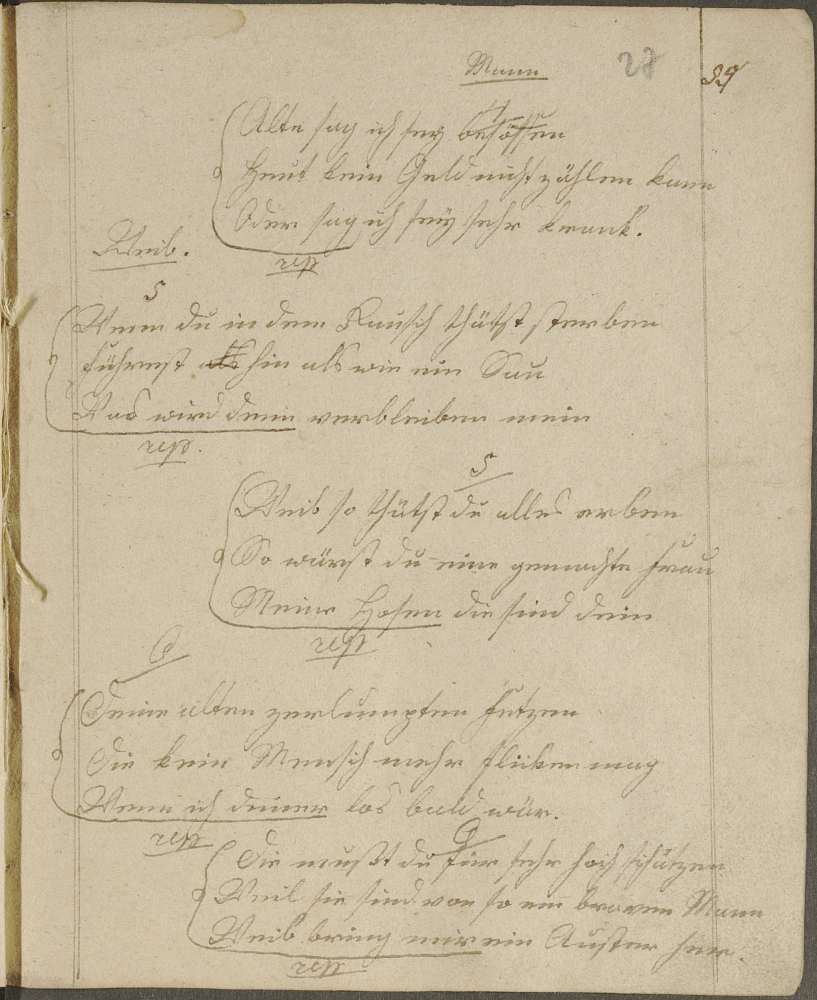 Mann
28
59
4
Alte sag ich sey besoffen
Heut kein Geld nicht zählen kann
Oder sag ich sey sehr krank.
rep
Weib.
5
Wenn du in dem Rausch thätst sterben
führest als hin als wie ein Sau
Was wird denn verbleiben mein
rep.
5
Weib so thätst du alles erben
So wärst du eine gemachte Frau
Meine Hosen die sind dein
rept
6
Deine alten zerlumpten Fetzen
Die kein Mensch mehr flicken mag
Wenn ich deiner los bald wär.
rept
6
Die mußt du für sehr hoch schätzen
Weil sie sind von so ein braven Mann
Weib bring mir ein her.
rept